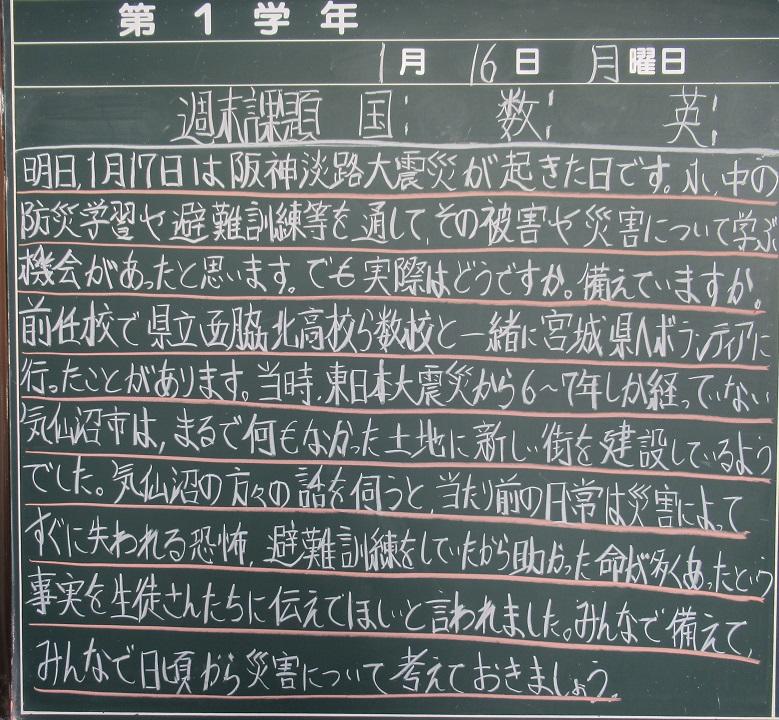 第1学年
1月 16日 月曜日
週末課題 国: 数: 英:
明日,1月17日は阪神淡路大震災が起きた日です。小,中の
防災学習や避難訓練等を通して,その被害や災害について学ぶ
機会があったと思います。でも実際はどうですか。備えていますか。
前任校で県立西脇北高校ら数校と一緒に宮城県へボランティアに
行ったことがあります。当時,東日本大震災から6~7年しか経っていない
気仙沼市は,まるで何もなかった土地に新しい街を建設しているよう
でした。気仙沼の方々の話を伺うと,当たり前の日常は災害によって
すぐに失われる恐怖,避難訓練をしていたから助かった命が多くあったという
事実を生徒さんたちに伝えてほしいと言われました。みんなで備えて,
みんなで日頃から災害について考えておきましょう。